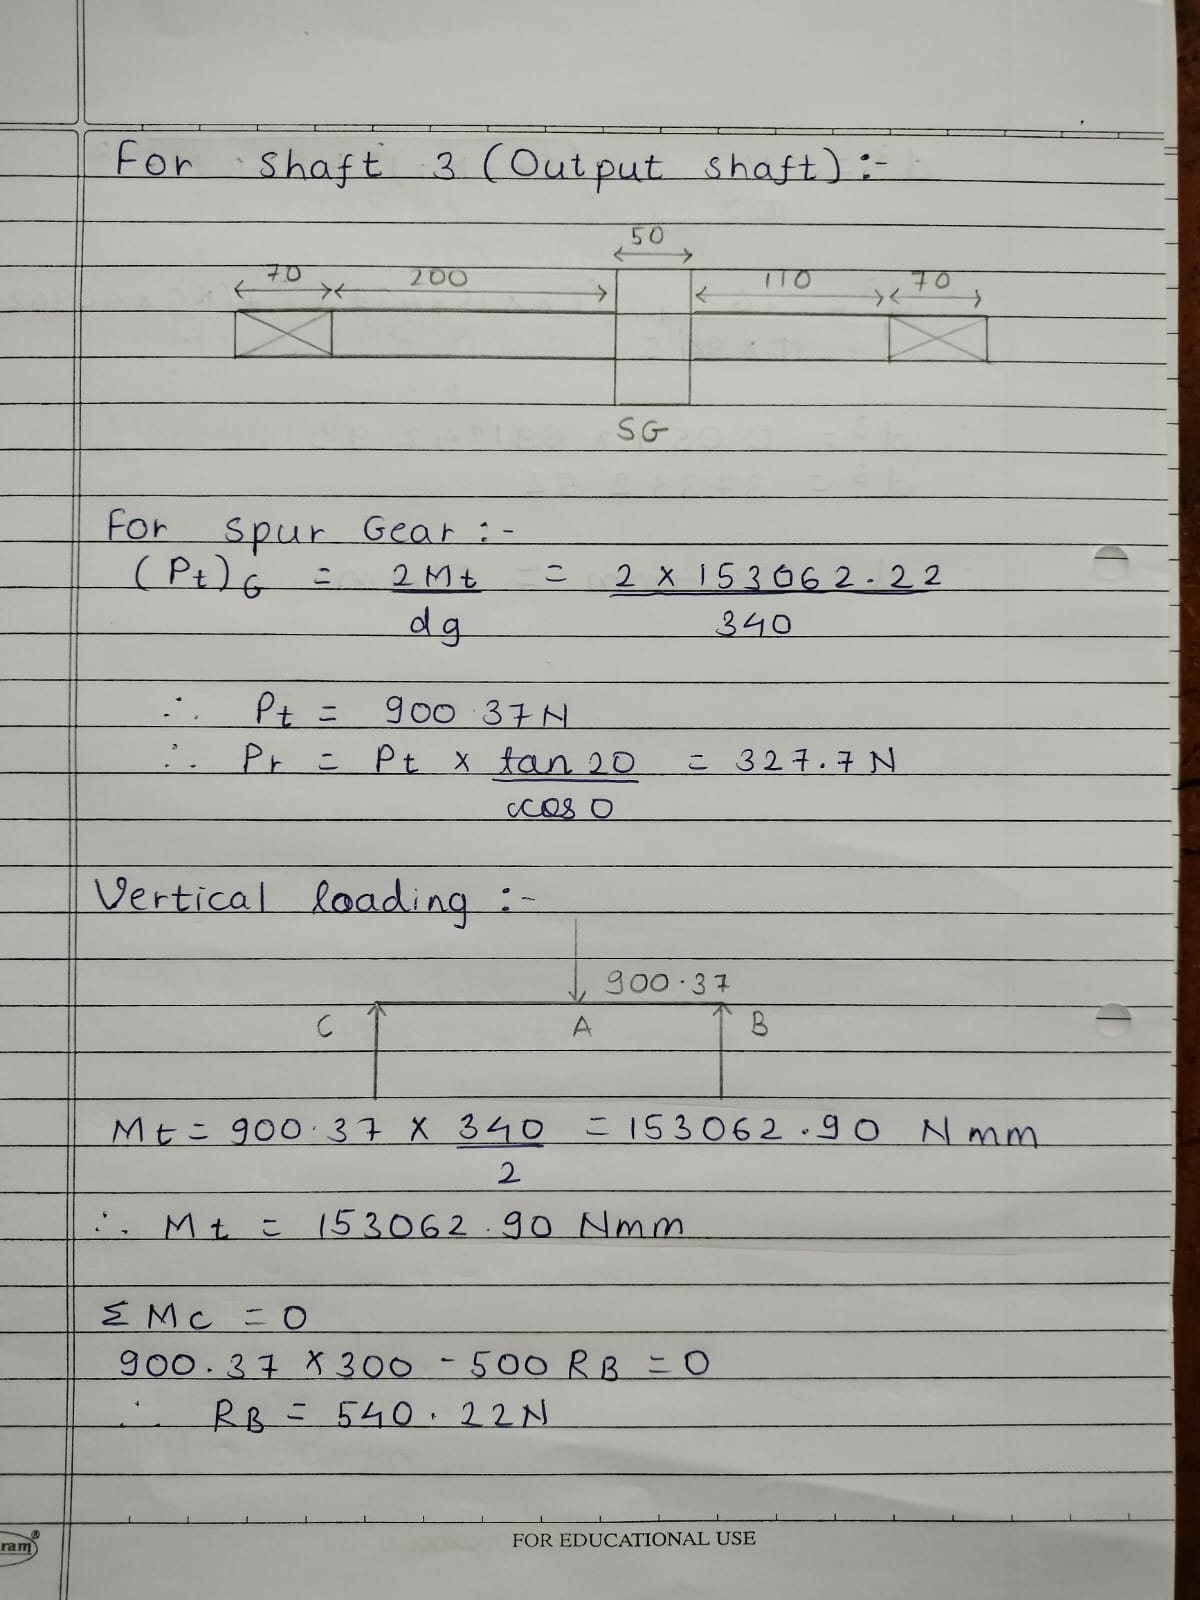 For shaft 3 (Output shaft) :-
50
70 200 110 70
SG
For spur Gear :-
(Pt)G = 2Mt = 2 x 153062.22
dg 340
∴ Pt = 900.37N
∴ Pr = Pt x tan 20 = 327.7 N
cos 0
Vertical loading :-
900.37
C A B
Mt = 900.37 x 340 = 153062.90 N mm
2
∴ Mt = 153062.90 Nmm
Σ Mc = 0
900.37 x 300 - 500 RB = 0
∴ RB = 540.22N
FOR EDUCATIONAL USE
ram®